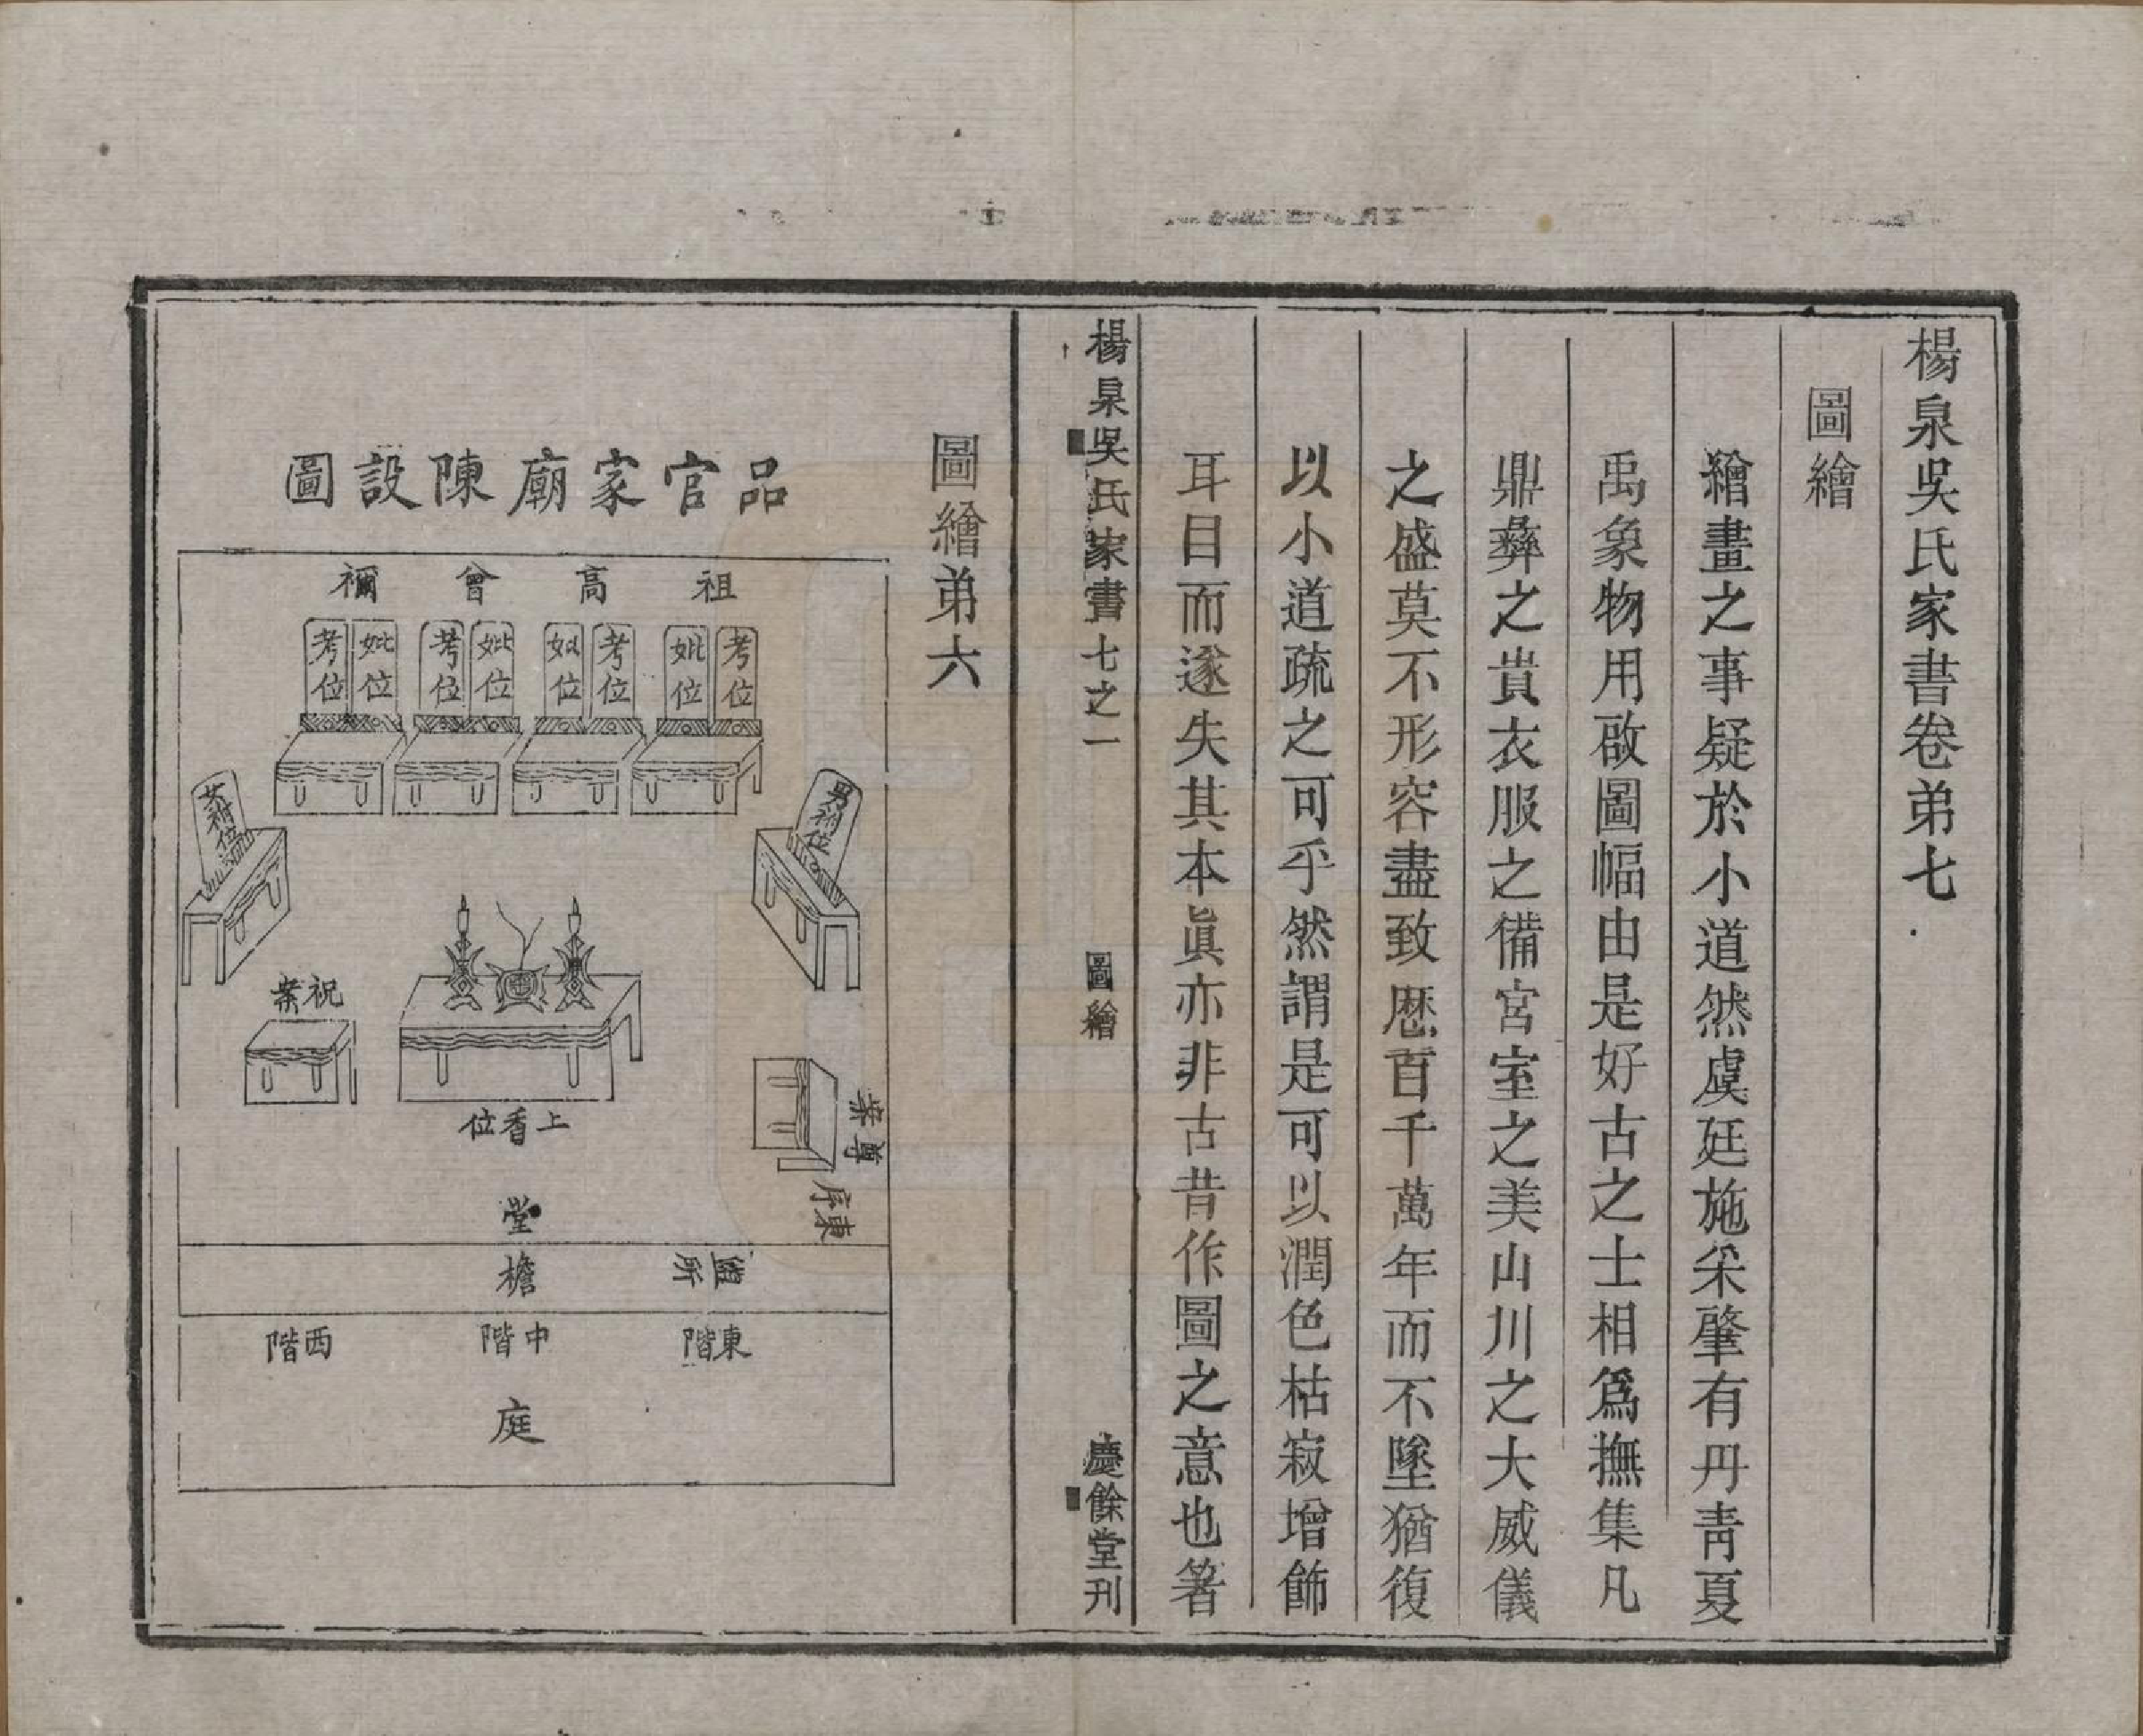 楊泉吳氏家書卷弟七
圖繪
繪畫之事疑於小道然虞廷施采肇有丹靑夏
禹象物用啟圖幅由是好古之士相爲撫集凡
鼎彝之貴衣服之備宮室之美山川之大威儀
之盛莫不形容盡致歷百千萬年而不墜猶復
以小道疏之可乎然謂是可以潤色枯寂增飾
耳目而遂失其本眞亦非古昔作圖之意也箸
楊泉吳氏家書七之一
圖繪
慶餘堂刊
圖繪弟六
品官家廟陳設圖
祖
高
曾
禰
考位
妣位
考位
妣位
妣位
考位
妣位
考位
男祔位
女祔位
祝案
上香位
尊案
東序
堂
檐
盥所
東階
中階
西階
庭